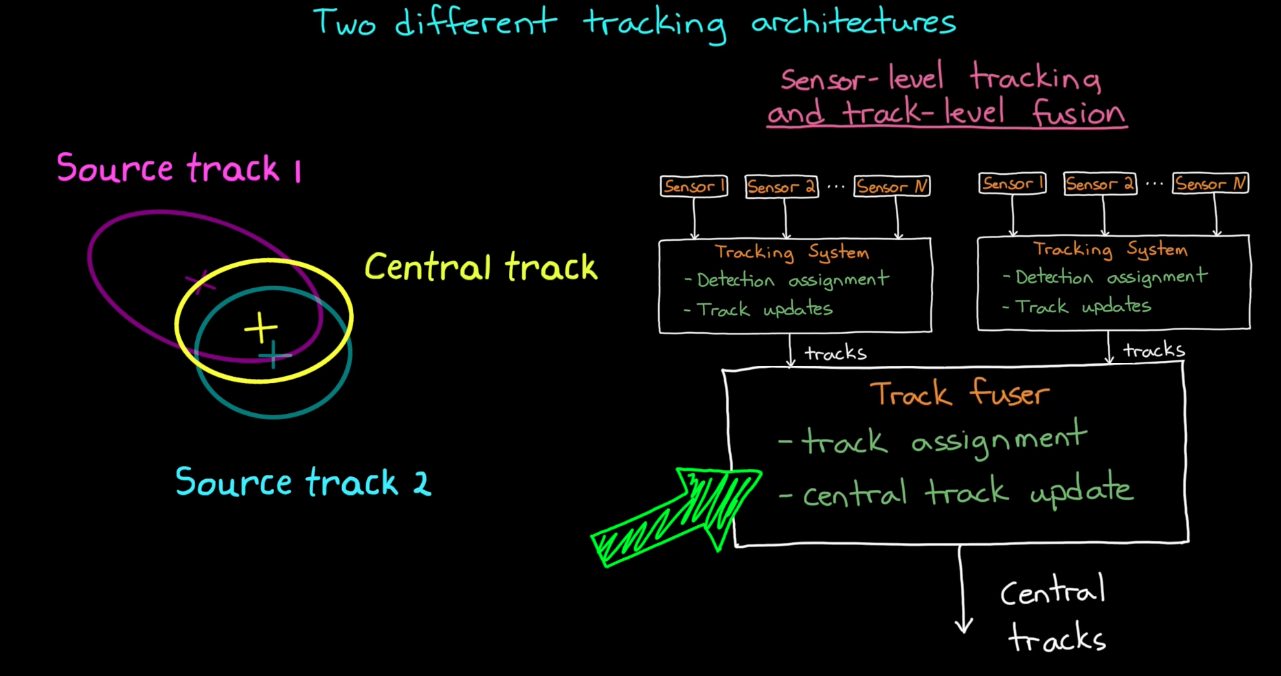 Two different tracking architectures
Sensor-level tracking
and track-level fusion
Source track 1
Central track
Source track 2
Sensor 1 Sensor 2 ... Sensor N
Tracking System
- Detection assignment
- Track updates
tracks
Sensor 1 Sensor 2 ... Sensor N
Tracking System
- Detection assignment
- Track updates
tracks
Track fuser
- track assignment
- central track update
Central
tracks